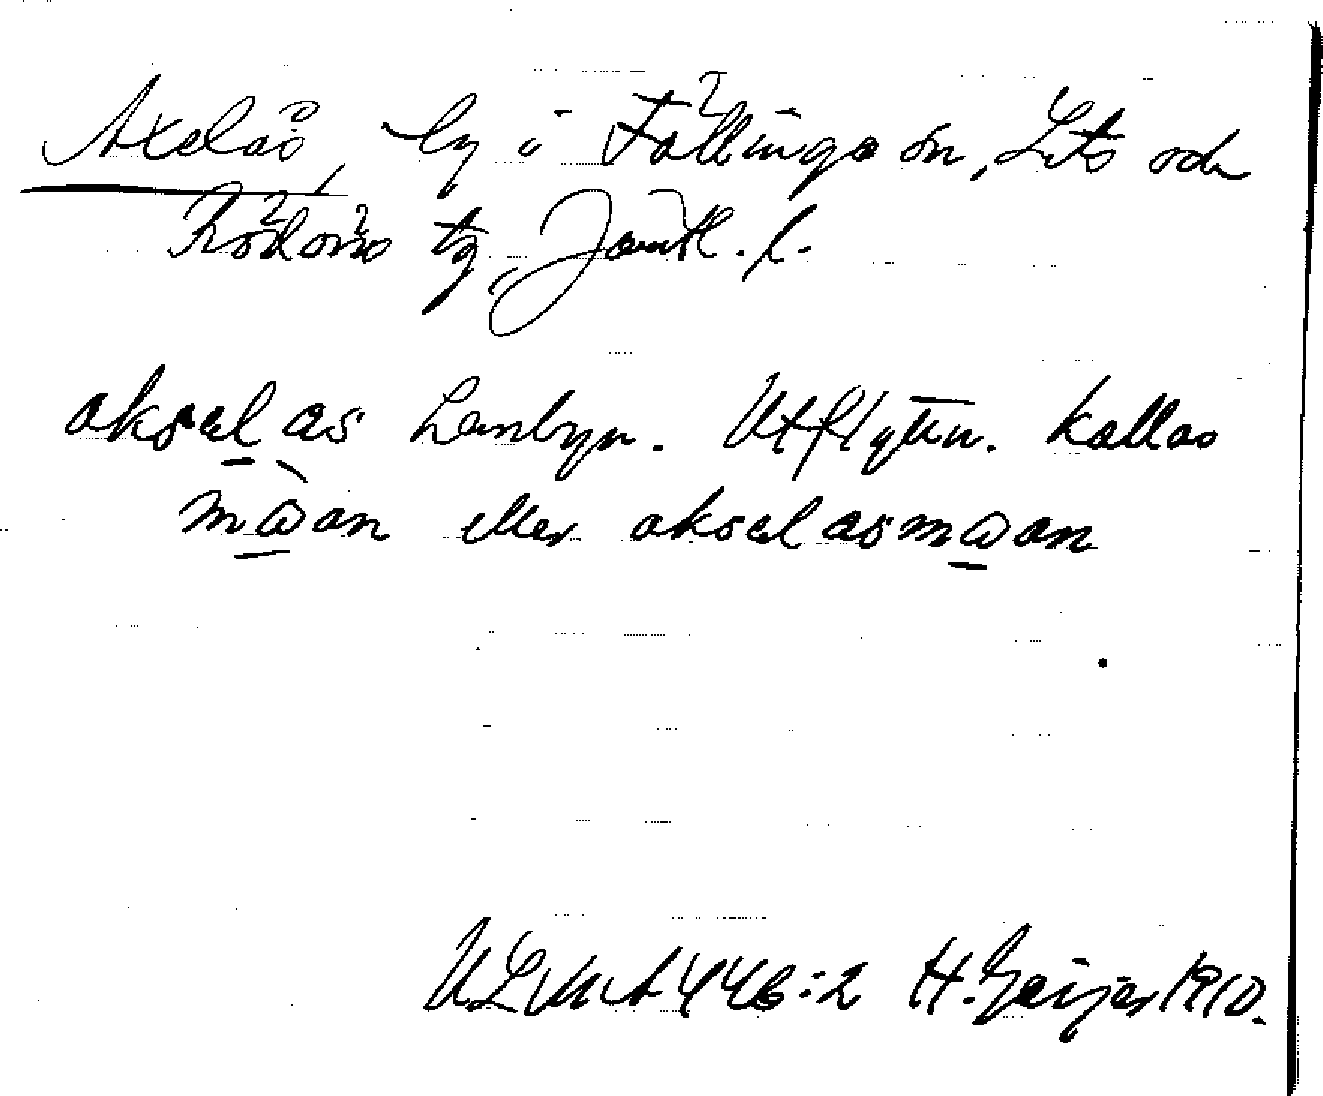 Axelås, by i Föllinge sn, Lits och
Rödöns tg, Jämtl. l.
aksælas hembyn. Utflyttn. kallas
mωan eller aksælasmωan
ULMA 446:2 H. Geijer 1910.